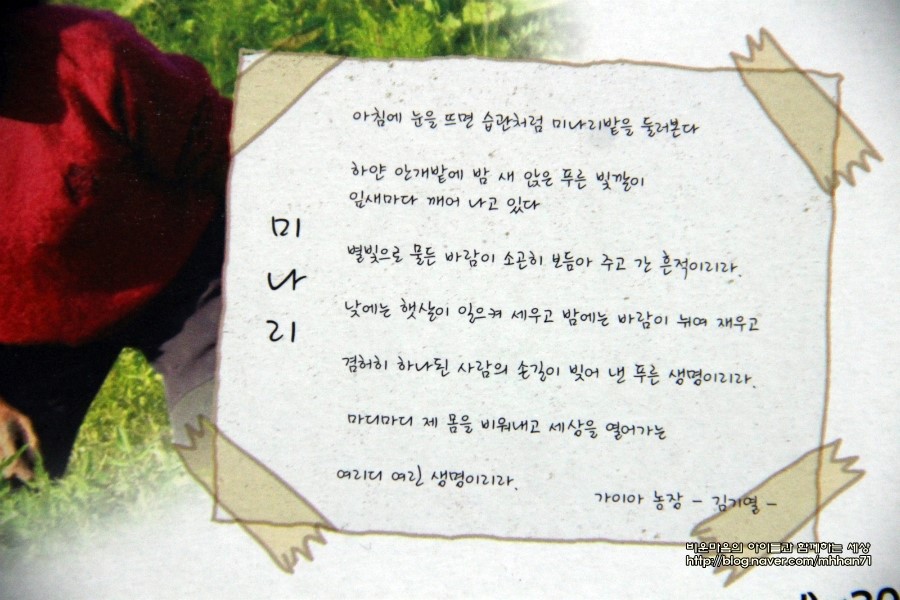 미나리
아침에 눈을 뜨면 습관처럼 미나리밭을 둘러본다
하얀 안개밭에 밤 새 앉은 푸른 빛깔이
잎새마다 깨어 나고 있다
별빛으로 물든 바람이 소곤히 보듬아 주고 간 흔적이리라.
낮에는 햇살이 일으켜 세우고 밤에는 바람이 뉘여 재우고
겸허히 하나된 사람의 손길이 빚어 낸 푸른 생명이리라.
마디마디 제 몸을 비워내고 세상을 열어가는
여리디 여린 생명이리라.
가이아 농장 - 김기열 -
비운마음의 아이들과 함께하는 세상
http://blog.naver.com/mhhan71